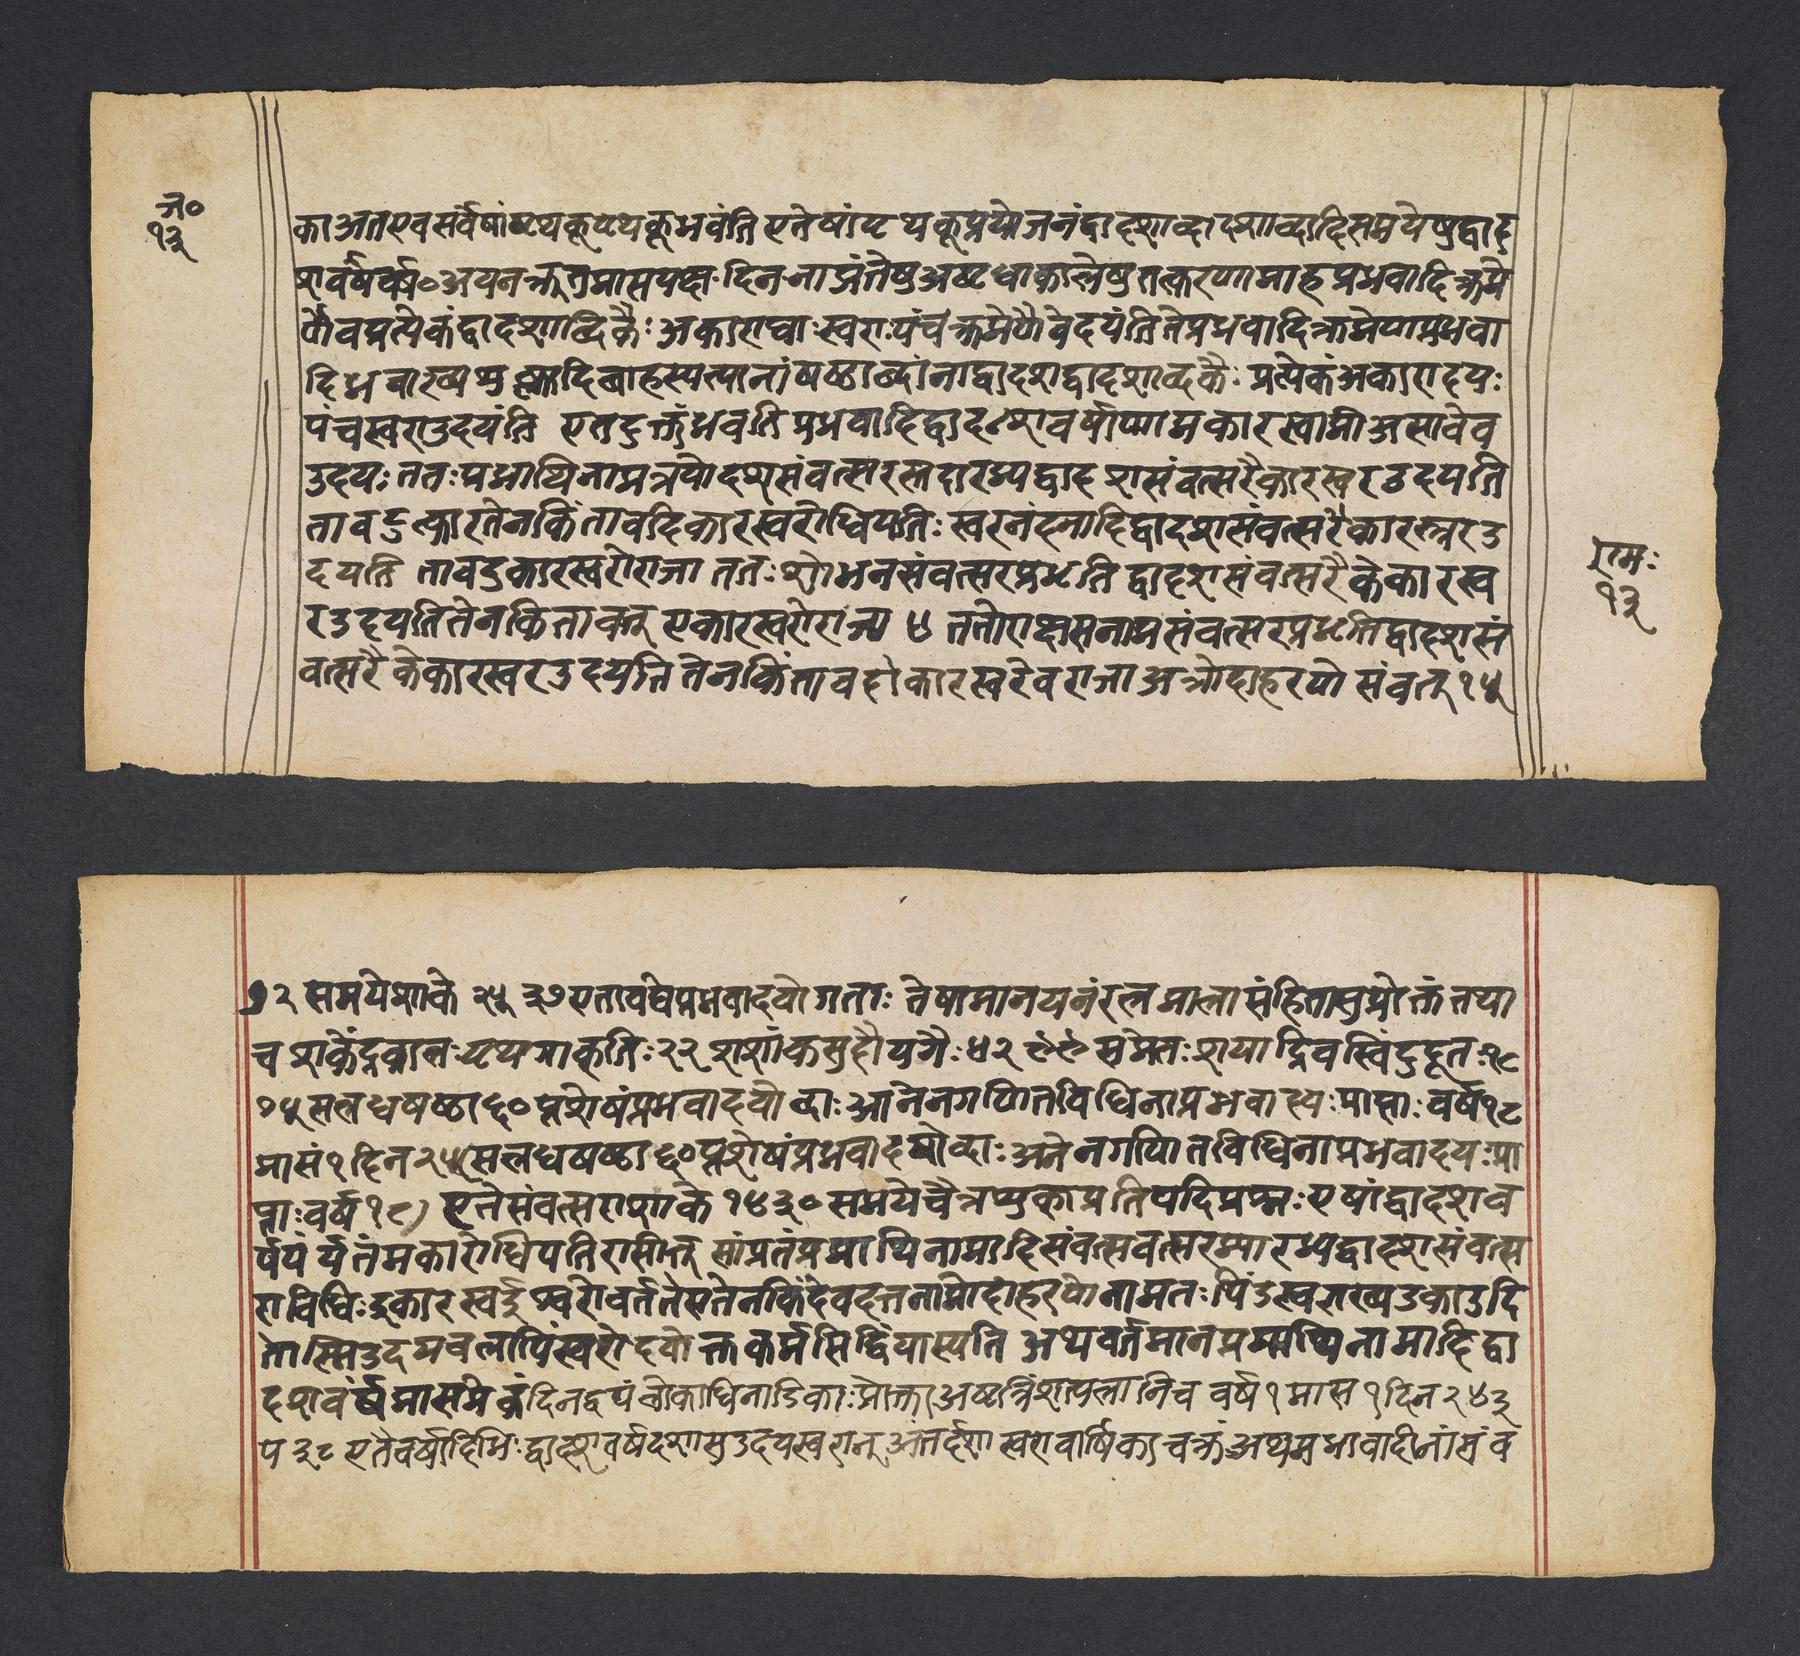 ज०
१३
का अत एव सर्वेषां पृथक् पृथक् भवंति एतेषां पृथक् प्रयोजनं द्वादशाब्दादशाब्दादिसमयेषु द्वाद
शवर्षवर्ष० अयनऋतुमासपक्षः दिननाम्रंतेषु अष्टधाकालेषु तत्करणमाह प्रभवादिक्रमे
णैव प्रत्येकं द्वादशाब्दिकैः अकाराद्याः स्वराः पंचक्रमेणैवेदयंति ते प्रभवादिक्रमेण प्रभवा
दिभवाख्य शुक्लादि बार्हस्पत्यानां षष्ठाब्दांना द्वादशद्वादशाब्दकैः प्रत्येकं अकारादयः
पंचस्वरा उदयंति एतदुक्तं भवति प्रभवादिद्वादशवर्षाणामकारस्वामी असावेव
उदयः ततः प्रमाथिनामत्रयोदशसंवत्सरस्तदारभ्य द्वादशसंवत्सरैकारस्वर उदयति
ताव किं तावदिकारस्वरोधिपतिः स्वरनंदनादिद्वादशसंवत्सरैकारस्वर उ
दयति तावदुकारस्वरोराजा ततः शोभनसंवत्सरप्रभृति द्वादशसंवत्सरैकेकारस्व
र उदयति तेन किं तावत् एकारस्वरोराजा ४ ततोराक्षसनामसंवत्सरप्रभृति द्वादशसं
वत्सरैकेकारस्वर उदयति तेन किं तावदोकारस्वरेवराजा अत्रोदाहरणे संवत् १५
रामः
१३
७२ समये शाके १५३७ एतावर्षे प्रभवादयो गताः तेषामानयनं रत्नमाला संहितासु प्रोक्तं तथा
च शाकेंद्रकालः पृथगाकृतिः २२ शशांक युगैः ४२९१ समेतः शराद्रिवस्विंदुहृतः १८
७५ सलब्धषष्ठा ६० प्तशेषं प्रभवादयोब्दाः आनेनगणितविधिनाप्रभवादयः प्राप्ताः वर्ष १८
मासं १ दिन २५ सलब्धषष्ठा ६० प्तशेषं प्रभवादयोब्दाः अनेनगणितविधिनाप्रभवादयः प्रा
प्ताः वर्ष १८) एते संवत्सरा शाके १४३० समये चैत्रशुक्लप्रतिपदिप्रश्नः एषां द्वादशव
र्षपर्यंतमकारोधिपतिरासीत् सांप्रतं प्रमाथिनामादिसंवत्सवत्सरमारभ्य द्वादशसंवत्स
राविधिः इकारस्वर ईश्वरोवर्तते तेनकिं देवदत्तनामोदाहरणे नामतः पिंडस्वराख्य उकाउदि
तोस्मि उदयबलापिंस्वरोदयोक्तकर्मसिद्धिंयास्यति अथवर्तमानप्रमाथिनामादिद्वा
दशवर्षमासमेकंदिनद्वयं नाडिकाः प्रोक्ता अष्टत्रिंशत्पलानि च वर्ष १ मास १ दिन २ ४३
प ३८ एतैवर्षादिभिः द्वादशवर्षदशासु उदयस्वरात् अंतर्दशा स्वरावार्षिकाचक्रं अथप्रभावादीनां संव